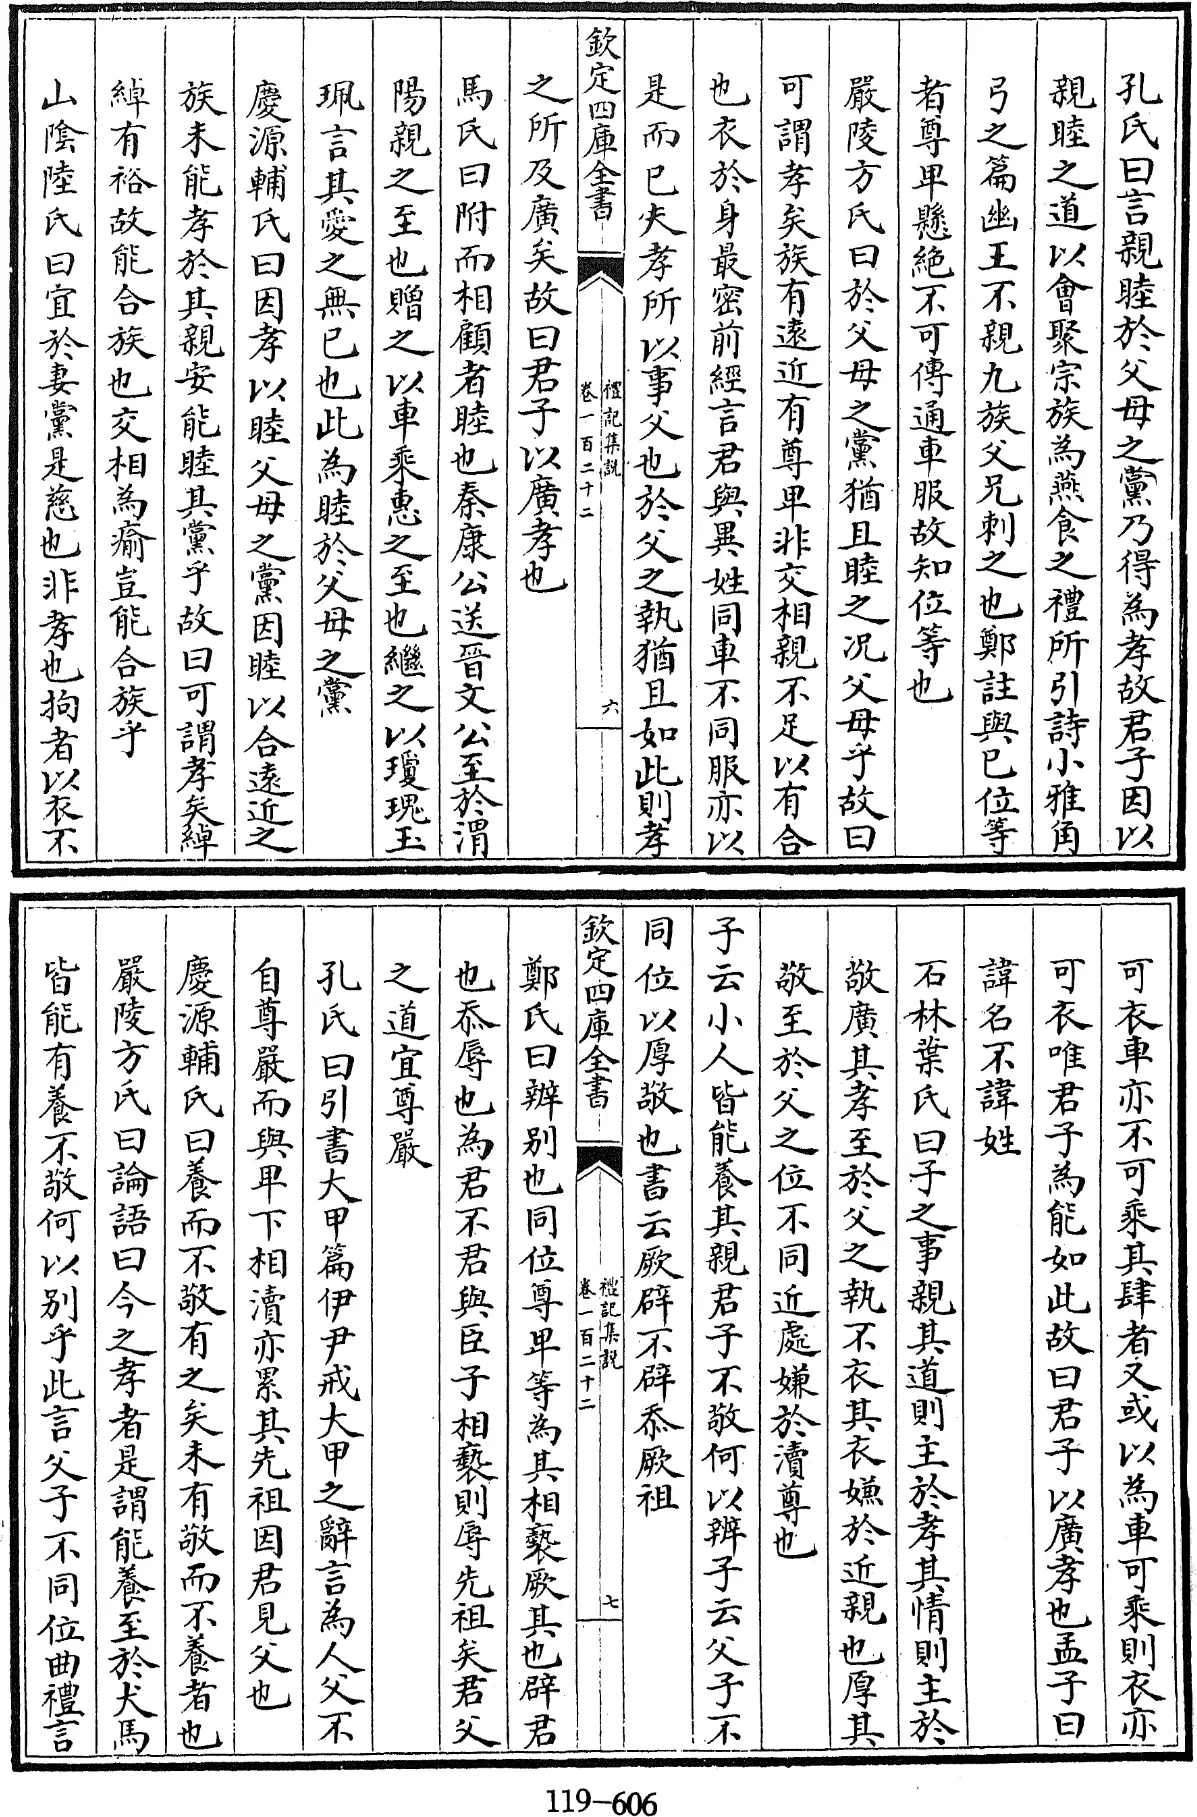 孔氏曰言親睦於父母之黨乃得為孝故君子因以
親睦之道以會聚宗族為燕食之禮所引詩小雅角
弓之篇幽王不親九族父兄刺之也鄭註與已位等
者尊卑懸絶不可傳通車服故知位等也
嚴陵方氏曰於父母之黨猶且睦之况父母乎故曰
可謂孝矣族有遠近有尊卑非交相親不足以有合
也衣於身最密前經言君與異姓同車不同服亦以
是而已夫孝所以事父也於父之執猶且如此則孝
欽定四庫全書
禮記集説
卷一百二十二
六
之所及廣矣故曰君子以廣孝也
馬氏曰附而相顧者睦也秦康公送晉文公至於渭
陽親之至也贈之以車乘惠之至也繼之以瓊瑰玉
珮言其愛之無已也此為睦於父母之黨
慶源輔氏曰因孝以睦父母之黨因睦以合遠近之
族未能孝於其親安能睦其黨乎故曰可謂孝矣綽
綽有裕故能合族也交相為瘉豈能合族乎
山陰陸氏曰宜於妻黨是慈也非孝也拘者以衣不
可衣車亦不可乘其肆者又或以為車可乘則衣亦
可衣唯君子為能如此故曰君子以廣孝也孟子曰
諱名不諱姓
石林葉氏曰子之事親其道則主於孝其情則主於
敬廣其孝至於父之執不衣其衣嫌於近親也厚其
敬至於父之位不同近處嫌於瀆尊也
子云小人皆能養其親君子不敬何以辨子云父子不
同位以厚敬也書云厥辟不辟忝厥祖
欽定四庫全書
禮記集説
卷一百二十二
七
鄭氏曰辨别也同位尊卑等為其相褻厥其也辟君
也忝辱也為君不君與臣子相褻則辱先祖矣君父
之道宜尊嚴
孔氏曰引書大甲篇伊尹戒大甲之辭言為人父不
自尊嚴而與卑下相瀆亦累其先祖因君見父也
慶源輔氏曰養而不敬有之矣未有敬而不養者也
嚴陵方氏曰論語曰今之孝者是謂能養至於犬馬
皆能有養不敬何以别乎此言父子不同位曲禮言
119-606